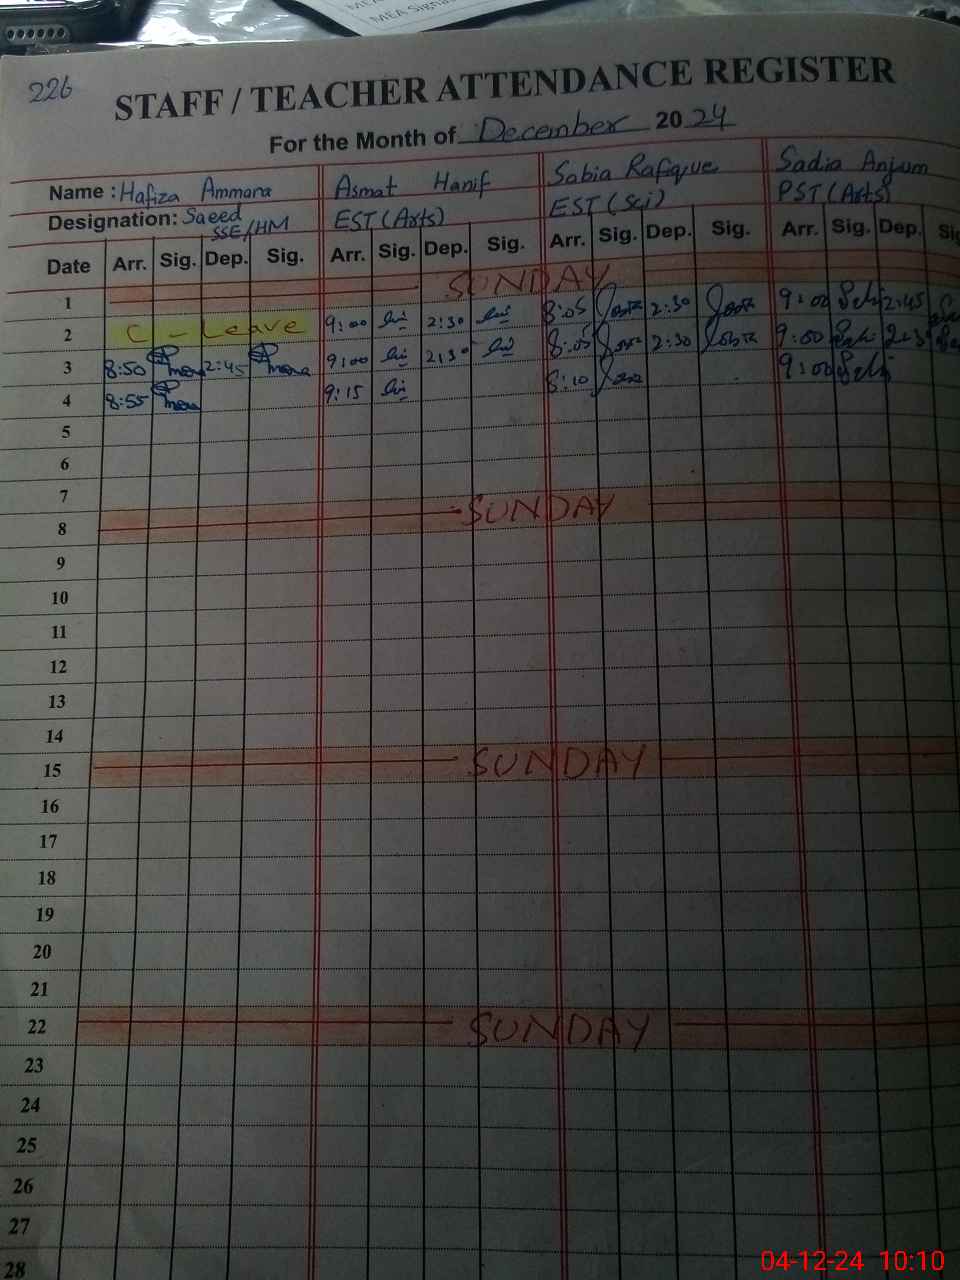 MEA Signa
226
STAFF / TEACHER ATTENDANCE REGISTER
For the Month of December 2024
Name : Hafiza Ammara Asmat Hanif Sabia Rafique Sadia Anjum
Designation: Saeed EST (Arts) EST (Sci) PST (Arts)
SSE/HM
Date Arr. Sig. Dep. Sig. Arr. Sig. Dep. Sig. Arr. Sig. Dep. Sig. Arr. Sig. Dep. Sig
1 SUNDAY
2 C - Leave 9:00 2:30 8:05 2:30 9:00 2:45
3 8:50 2:45 9:00 2:30 8:05 2:30 9:00
4 8:55 9:15 8:10 9:00
5
6
7
8 SUNDAY
9
10
11
12
13
14
15 SUNDAY
16
17
18
19
20
21
22 SUNDAY
23
24
25
26
27
28
04-12-24 10:10